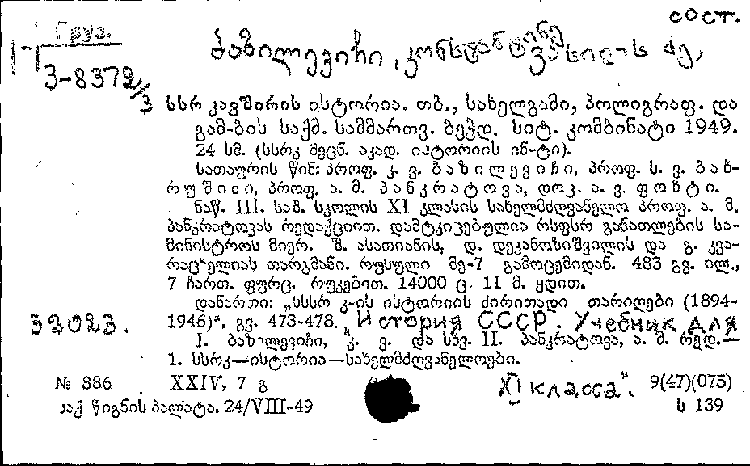 сост.
Груз.
ბაზილევიჩი, კონსტანტინე
ვასილის ძე,
3-8372/3
სსრ კავშირის ისტორია. თბ., სახელგამი, პოლიგრაფ. და
გამ-ბის საქმ. სამმართვ. ბეჭდ. სიტ. კომბინატი 1949.
24 სმ. (სსრკ მეცნ. აკად. ისტორიის ინ-ტი).
სათაურის წინ: პროფ. კ. ვ. ბაზილევიჩი, პროფ. ს. ვ. ბახ-
რუშინი, პროფ. ა. მ. პანკრატოვა, დოკ. ა. ვ. ფოხტი.
ნაწ. III. საშ. სკოლის XI კლასის სახელმძღვანელო პროფ. ა. მ.
პანკრატოვას რედაქციით. დამტკიცებულია რსფსრ განათლების სა-
მინისტროს მიერ. შ. ასათიანის, დ. დეკანოზიშვილის და გ. კვა-
რაცხელიას თარგმანი. რუსული მე-7 გამოცემიდან. 483 გვ. ილ.,
7 ჩართ. ფურც. რუკებით. 14000 ც. 11 მ. ყდით.
დანართი: „სსსრ კ-ის ისტორიის ძირითადი თარიღები (1894-
1946)“. გვ. 473-478. „История СССР. Учебник для
33023.
I. ბაზილევიჩი, კ. ვ. და სხვ. II. პანკრატოვა, ა. მ. რედ.—
1. სსრკ—ისტორია—სახელმძღვანელოები.
№ 886 XXIV, 7 გ XI класса“. 9(47)(075)
საქ წიგნის პალატა. 24/VIII-49 ს 139